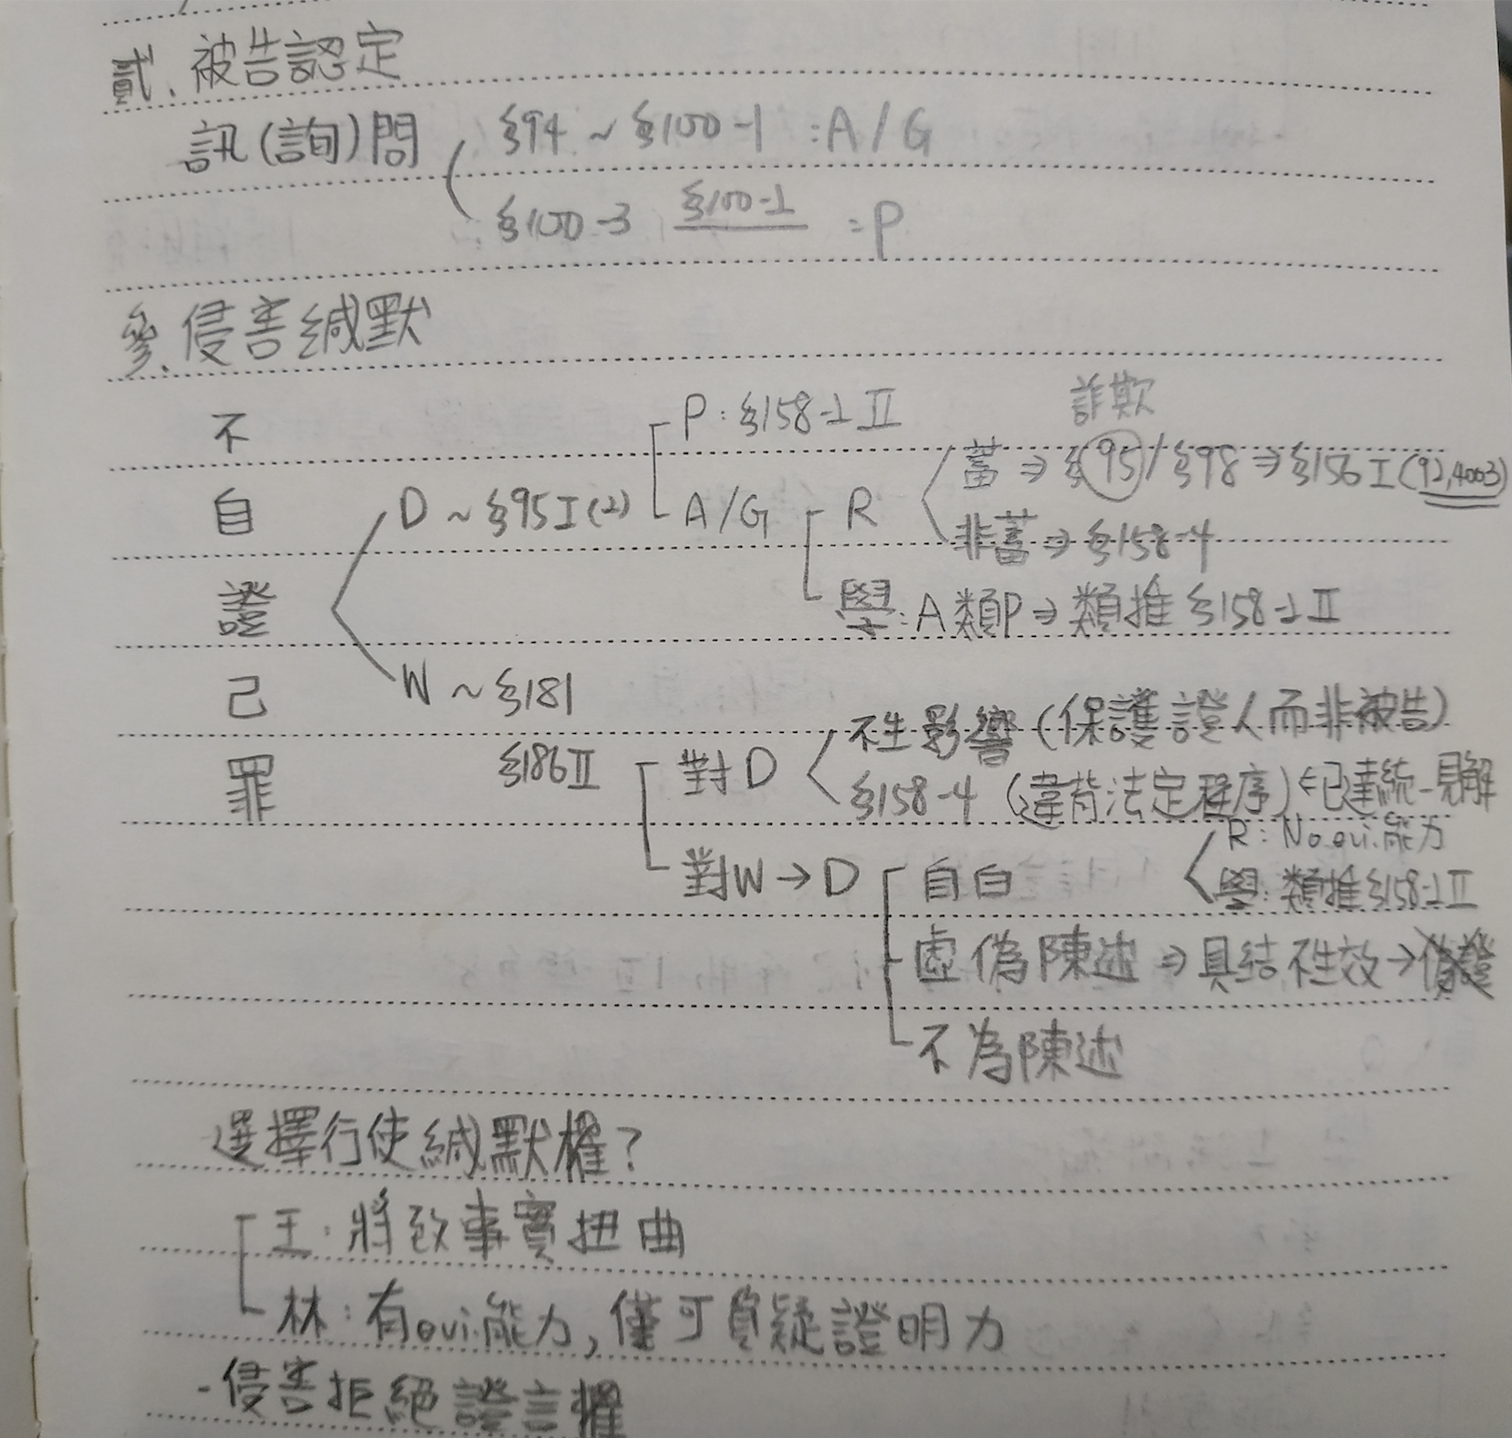 貳、被告認定
訊(詢)問 §94 ~ §100-1 : A/G
§100-3 §100-2 : P
參、侵害緘默
不自證己罪
D ~ §95I(2)
P : §158-2 II
A/G
R
詐欺
蓄 ⇒ §95/§98 ⇒ §156I (92,4003)
非蓄 ⇒ §158-4
學 : A類P ⇒ 類推 §158-2 II
W ~ §181
§186II
對D
不生影響 (保護證人而非被告)
§158-4 (違背法定程序) ⇐ 已達統一見解
對W → D
自白
R : No evi.能力
學 : 類推§158-2 II
虛偽陳述 ⇒ 具結不生效 → 偽證
不為陳述
選擇行使緘默權?
王 : 將致事實扭曲
林 : 有evi.能力, 僅可質疑證明力
-侵害拒絕證言權